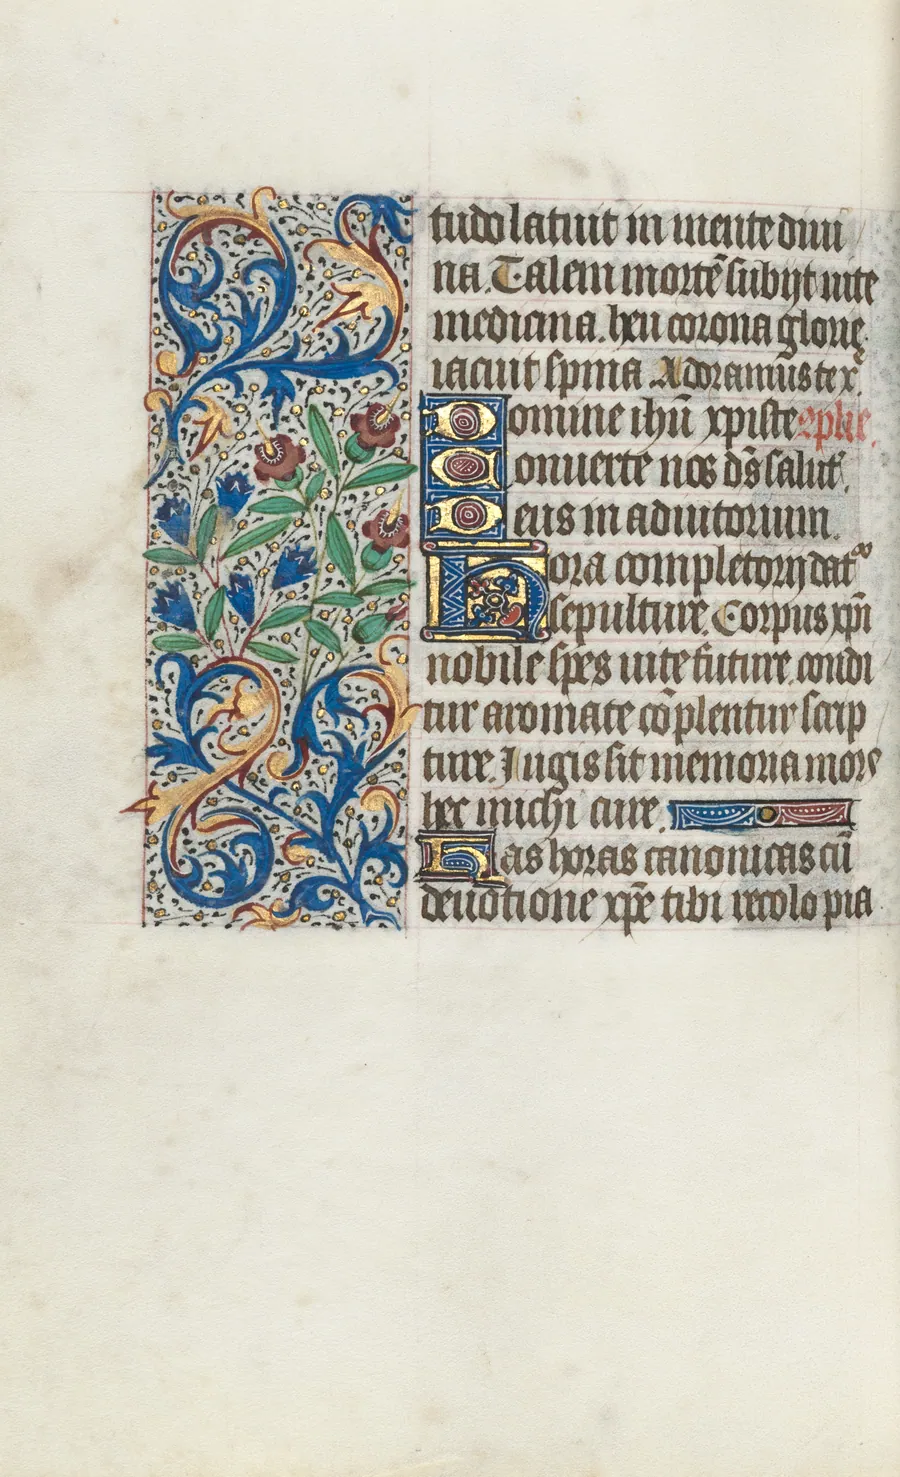 tudo latuit in mente diui
na. Talem mortē subijt uite
medicina. heu corona glorię
iacuit spina Adoramus te x̄.
Domine ihū xpiste cōplie.
Conuerte nos d̄s salut̄.
Deus in adiutorium.
Hora completorij datr
sepulture. Corpus xp̄i
nobile spes uite future. condi
tur aromate cōplentur scrip
ture. Jugis sit memoria mors
hec michi cure.
Has horas canonicas cū
deuotione xp̄e tibi recolo pia